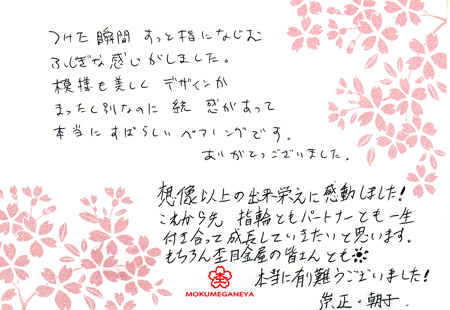 つけた瞬間 すっと指になじむ
ふしぎな感じがしました。
模様も美しく デザインが
まったく別なのに 統一感があって
本当にすばらしい ペアリングです。
ありがとうございました。
想像以上の出来栄えに感動しました!
これから先 指輪ともパートナーとも一生
付き合って成長していきたいと思います。
もちろん杢目金屋の皆さんとも
本当に有難うございました!
MOKUMEGANEYA
崇正・朝子